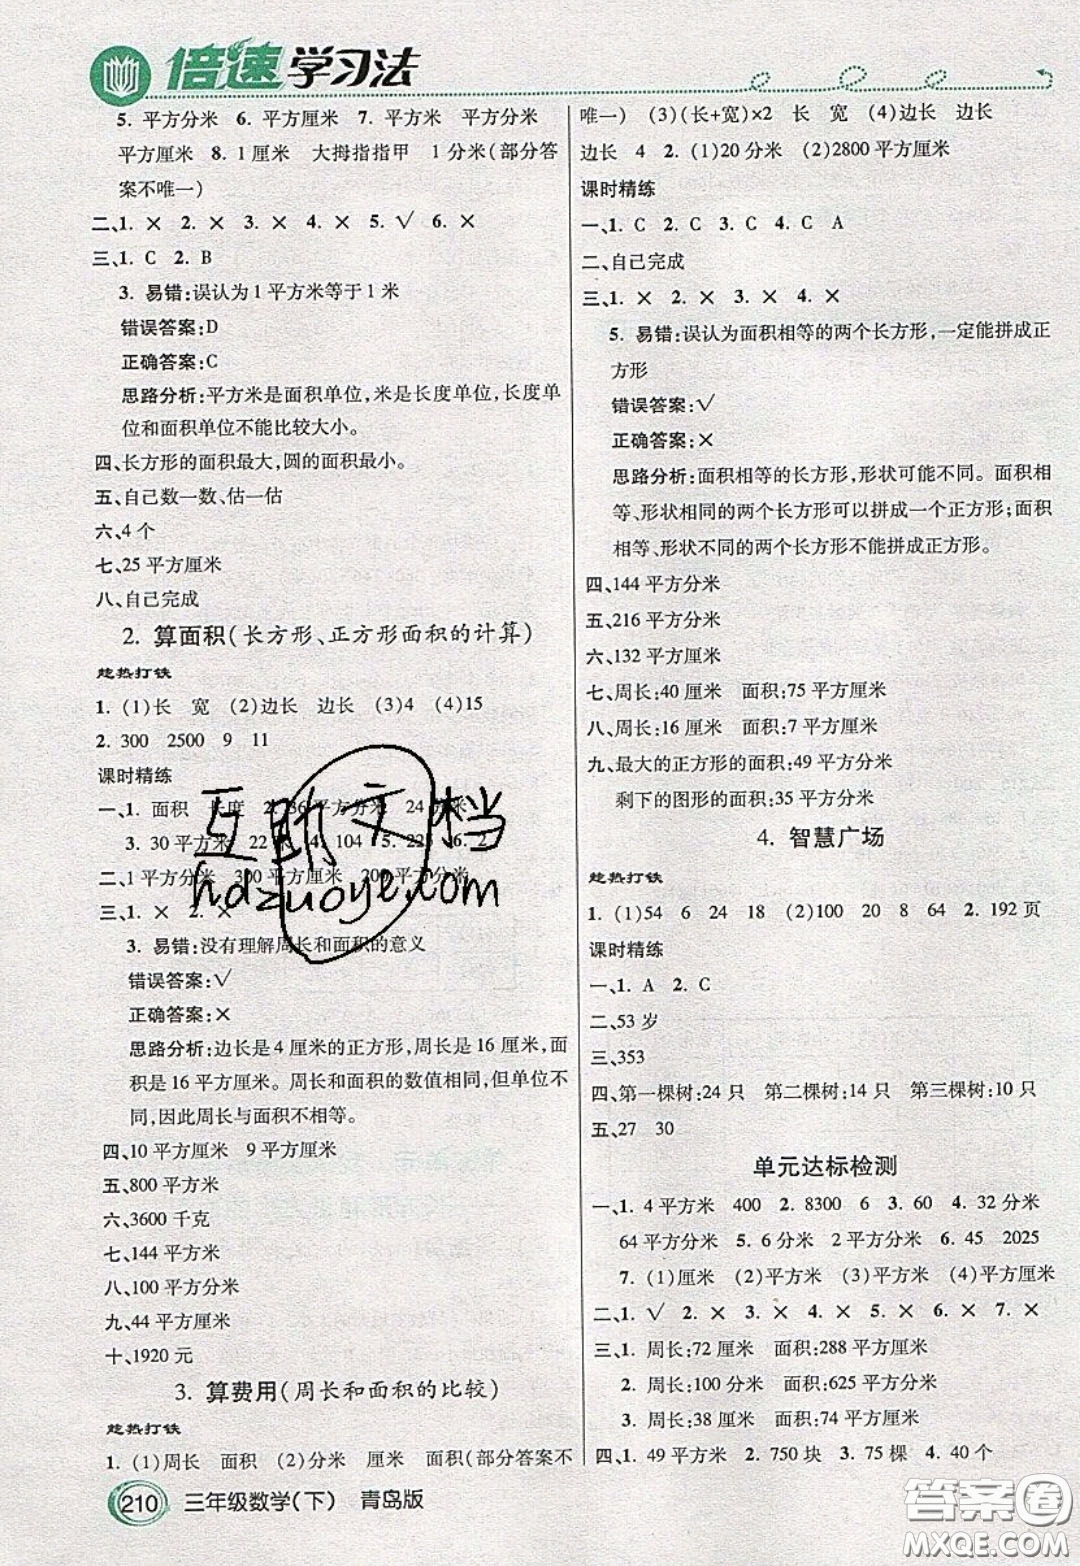 倍速学习法
5. 平方分米 6. 平方厘米 7. 平方米 平方分米
平方厘米 8. 1厘米 大拇指指甲 1分米(部分答
案不唯一)
二、1. × 2. × 3. × 4. × 5. √ 6. ×
三、1. C 2. B
3. 易错:误认为1平方米等于1米
错误答案:D
正确答案:C
思路分析:平方米是面积单位,米是长度单位,长度单
位和面积单位不能比较大小。
四、长方形的面积最大,圆的面积最小。
五、自己数一数、估一估
六、4个
七、25平方厘米
八、自己完成
2. 算面积(长方形、正方形面积的计算)
趁热打铁
1. (1)长 宽 (2)边长 边长 (3)4 (4)15
2. 300 2500 9 11
课时精练
一、1. 面积 长度 2. 36平方分米 24分米
3. 30平方厘米 22厘米 4. 104 5. 225 6. 2
二、1平方分米 300平方厘米 200平方分米
三、1. × 2. ×
3. 易错:没有理解周长和面积的意义
错误答案:√
正确答案:×
思路分析:边长是4厘米的正方形,周长是16厘米,面
积是16平方厘米。周长和面积的数值相同,但单位不
同,因此周长与面积不相等。
四、10平方厘米 9平方厘米
五、800平方米
六、3600千克
七、144平方米
八、100平方分米
九、44平方厘米
十、1920元
3. 算费用(周长和面积的比较)
趁热打铁
1. (1)周长 面积 (2)分米 厘米 面积(部分答案不
210 三年级数学(下) 青岛版
唯一) (3)(长+宽)×2 长 宽 (4)边长 边长
边长 4 2. (1)20分米 (2)2800平方厘米
课时精练
一、1. C 2. C 3. C 4. C A
二、自己完成
三、1. × 2. × 3. × 4. ×
5. 易错:误认为面积相等的两个长方形,一定能拼成正
方形
错误答案:√
正确答案:×
思路分析:面积相等的长方形,形状可能不同。面积相
等、形状相同的两个长方形可以拼成一个正方形;面积
相等、形状不同的两个长方形不能拼成正方形。
四、144平方分米
五、216平方分米
六、132平方厘米
七、周长:40厘米 面积:75平方厘米
八、周长:16厘米 面积:7平方厘米
九、最大的正方形的面积:49平方厘米
剩下的图形的面积:35平方厘米
4. 智慧广场
趁热打铁
1. (1)54 6 24 18 (2)100 20 8 64 2. 192页
课时精练
一、1. A 2. C
二、53岁
三、353
四、第一棵树:24只 第二棵树:14只 第三棵树:10只
五、27 30
单元达标检测
一、1. 4平方米 400 2. 8300 6 3. 60 4. 32分米
64平方分米 5. 6分米 2平方分米 6. 45 2025
7. (1)厘米 (2)平方米 (3)平方米 (4)平方厘米
二、1. √ 2. × 3. × 4. × 5. × 6. × 7. ×
三、1. 周长:72厘米 面积:288平方厘米
2. 周长:100分米 面积:625平方分米
3. 周长:38厘米 面积:74平方厘米
四、1. 49平方米 2. 750块 3. 75棵 4. 40个
互助文档
hdzuoye.com
答案圈
MXQE.COM